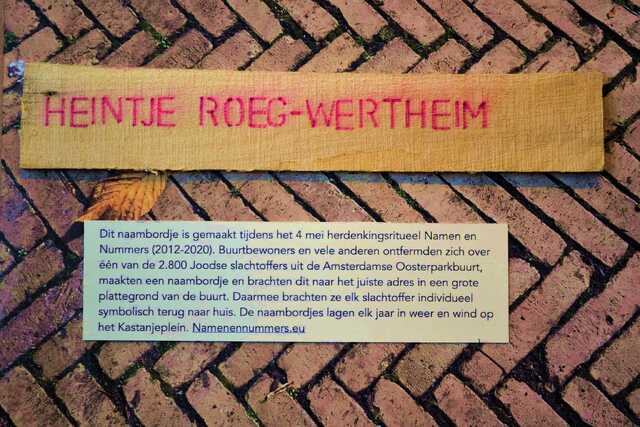 HEINTJE ROEG-WERTHEIM
Dit naambordje is gemaakt tijdens het 4 mei herdenkingsritueel Namen en
Nummers (2012-2020). Buurtbewoners en vele anderen ontfermden zich over
één van de 2.800 Joodse slachtoffers uit de Amsterdamse Oosterparkbuurt,
maakten een naambordje en brachten dit naar het juiste adres in een grote
plattegrond van de buurt. Daarmee brachten ze elk slachtoffer individueel
symbolisch terug naar huis. De naambordjes lagen elk jaar in weer en wind op
het Kastanjeplein. Namenennummers.eu